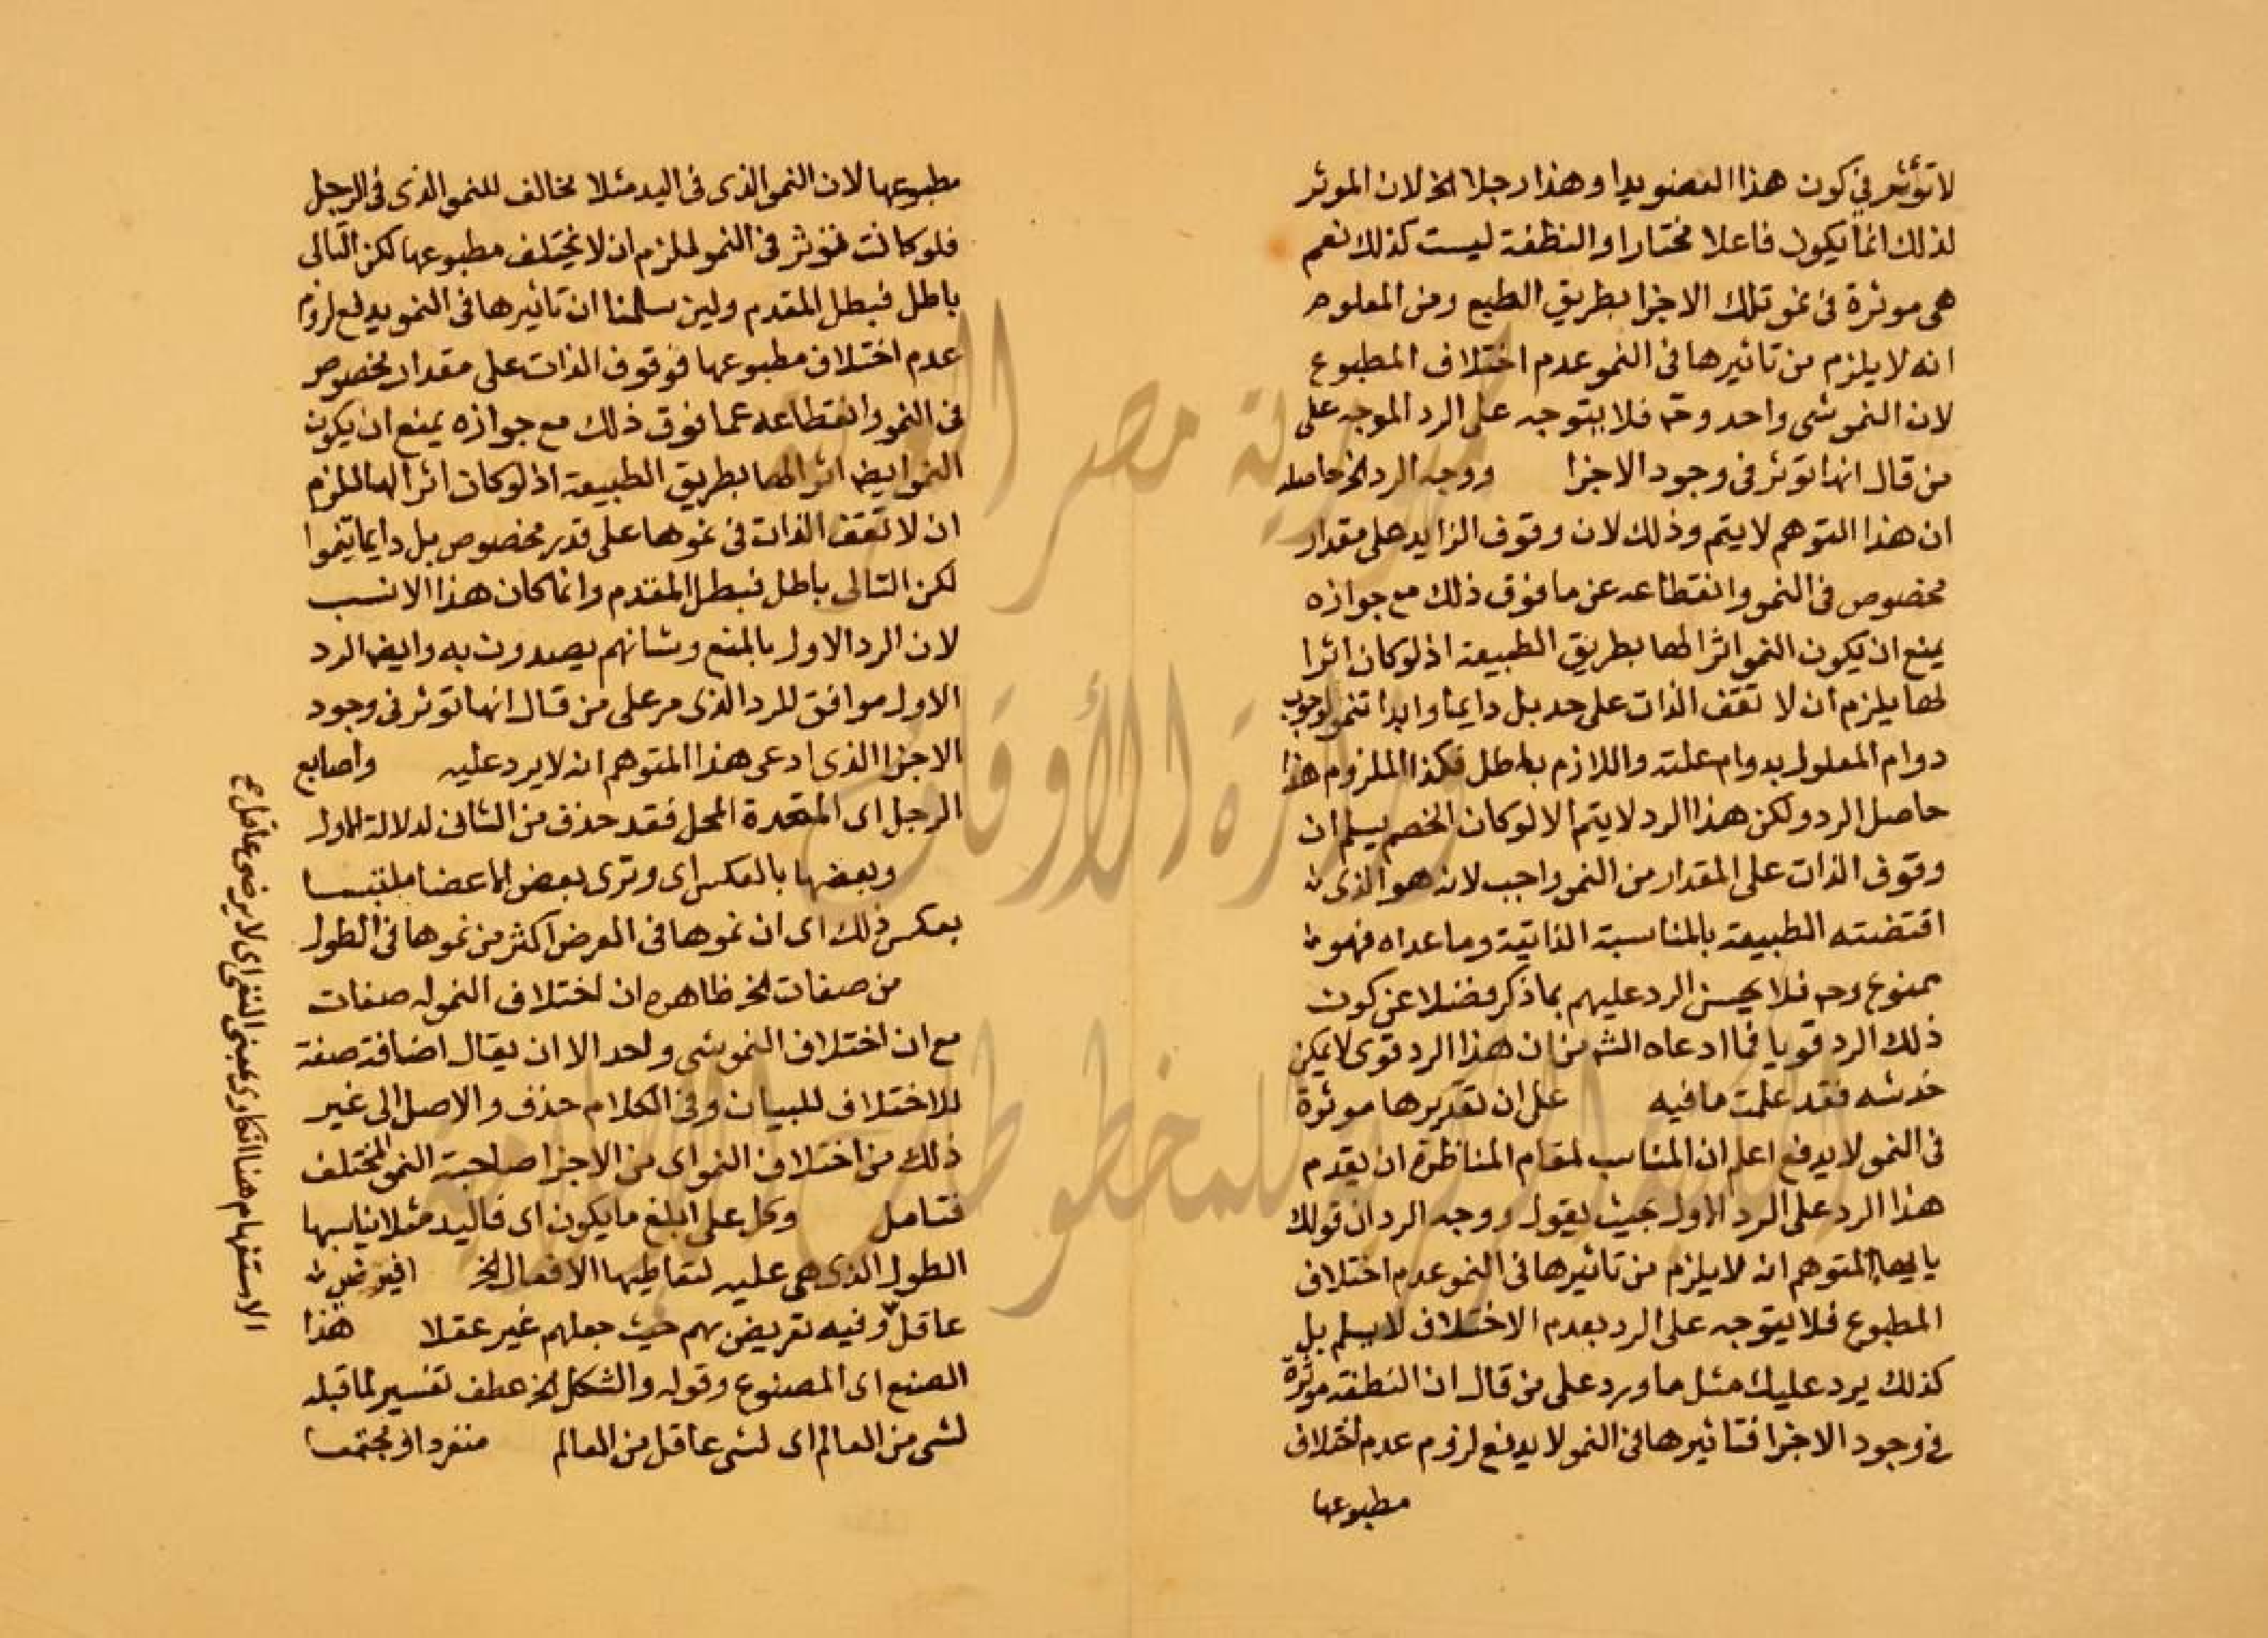 لا تؤثر في كون هذا العضو يدا وهذا رجلا الخ لان الموثر
لذلك انما يكون فاعلا مختارا والنطفة ليست كذلك نعم
هى موثرة في نمو تلك الاجزا بطريق الطبع ومن المعلوم
انه لا يلزم من تاثيرها فى النمو عدم اختلاف المطبوع
لان النمو شى واحد وحـ فلا يتوجه على الرد الموجه على
من قال انها توثر فى وجود الاجزا ووجه الرد الخ حاصله
ان هذا التوهم لا يتم وذلك لان وقوف الزايد على مقدار
مخصوص فى النمو وانقطاعه عن ما فوق ذلك مع جوازه
يمنع ان يكون النمو اثرا لها بطريق الطبيعة اذ لو كان اثرا
لها يلزم ان لا تقف الذات على حد بل دايما وابدا تنمو لوجوب
دوام المعلول بدوام علته واللازم باطل فكذا الملزوم هذا
حاصل الرد ولكن هذا الرد لا يتم الا لو كان الخصم يسلم ان
وقوف الذات على المقدار من النمو واجب لانه هو الذى
اقتضته الطبيعة بالمناسبة الذاتية وما عداه فهو
ممنوع وحـ فلا يحسن الرد عليهم بما ذكر فضلا عن كون
ذلك الرد قويا فما ادعاه الشـ من ان هذا الرد قوى لا يمكن
خدشه فقد علمت ما فيه على ان تقديرها موثرة
فى النمو لا يدفع اعلم ان المناسب لمقام المناظرة ان يقدم
هذا الرد على الرد الاول بحيث يقول ووجه الرد ان قولك
يا ايها المتوهم انه لا يلزم من تاثيرها فى النمو عدم اختلاف
المطبوع فلا يتوجه على الرد بعدم الاختلاف لا يسلم بل
كذلك يرد عليك مثل ما ورد على من قال ان النطفة موثرة
في وجود الاجزا فتاثيرها فى النمو لا يدفع لزوم عدم اختلاف
مطبوعها
مطبوعها لان النمو الذى فى اليد مثلا مخالف للنمو الذى فى الرجل
فلو كانت تؤثر فى النمو للزم ان لا يختلف مطبوعها لكن التالى
باطل فبطل المقدم ولين سلمنا ان تاثيرها فى النمو يدفع لزوم
عدم اختلاف مطبوعها فوقوف الذات على مقدار مخصوص
فى النمو وانقطاعه عما فوق ذلك مع جوازه يمنع ان يكون
النمو ايضا اثرا لها بطريق الطبيعة اذ لو كان اثرا لها للزم
ان لا تقف الذات فى نموها على قدر مخصوص بل دايما تنموا
لكن التالى باطل فبطل المقدم وانما كان هذا الانسب
لان الرد الاول بالمنع وشانهم يصدرون به وايضا الرد
الاول موافق للرد الذى مر على من قال انها توثر فى وجود
الاجزا الذى ادعى هذا المتوهم انه لا يرد عليه واصابع
الرجل اى المتحدة المحل فقد حذف من الثانى لدلالة الاول
وبعضها بالعكس اى وترى بعض الاعضا ملتبسا
بعكس ذلك اى ان نموها فى العرض اكثر من نموها فى الطول
من صفات الخ ظاهره ان اختلاف النمو له صفات
مع ان اختلاف النمو شى واحد الا ان يقال اضافة صفة
للاختلاف للبيان وفى الكلام حذف والاصل الى غير
ذلك من اختلاف النمو اى من الاجزا صاحبة النمو المختلف
فتامل وكل على ابلغ ما يكون اى فاليد مثلا يناسبها
الطول الذى هى عليه لتعاطيها الافعال الخ افيرضى
عاقل وفيه تعريض بهم حيث جعلهم غير عقلا هذا
الصنع اى المصنوع وقوله والشكل الخ عطف تفسير لما قبله
لشى من العالم اى لشى عاقل من العالم منفردا او مجتمعا
الاستفهام هنا انكارى بمعنى النفى اى لا يرضى عاقل
جمهورية مصر العربية
وزارة الأوقاف
المكتبة المركزية للمخطوطات الإسلامية